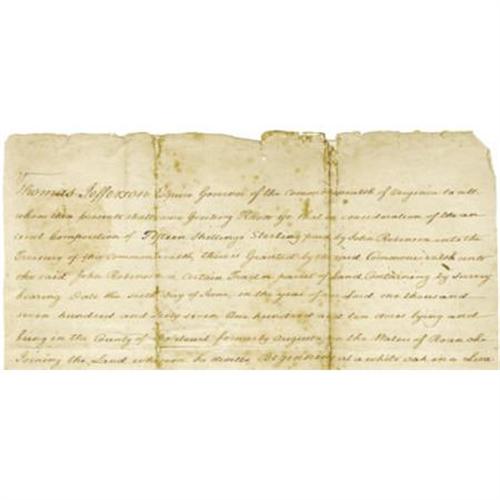 Thomas Jefferson Esquire Governor of the Commonwealth of Virginia to all
whom these presents shall come Greeting Know Ye that in consideration of the an
cient Composition of Fifteen Shillings Sterling paid by John Robinson into the
Treasury of this Commonwealth, there is Granted by the said Commonwealth unto
the said John Robinson a Certain Tract or parcel of Land Containing by Survey
bearing Date the Day of June, in the year of our Lord one thousand
seven hundred and Sixty seven One hundred and ten Acres lying and
being in the County of formerly Augusta on the Waters of Roan oke
Joining the Land whereon he dwells, Beginning at a white oak in a Line